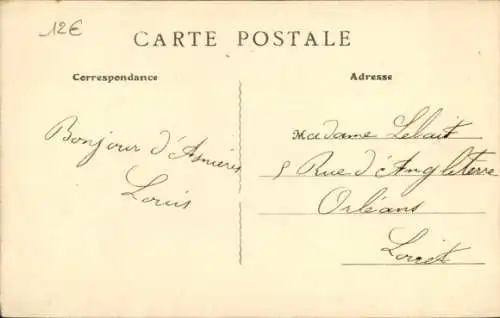 12€
CARTE POSTALE
Correspondance
Adresse
Bonjour d'Asnières
Louis
Madame Lebait
5 Rue d'Angleterre
Orléans
Loiret